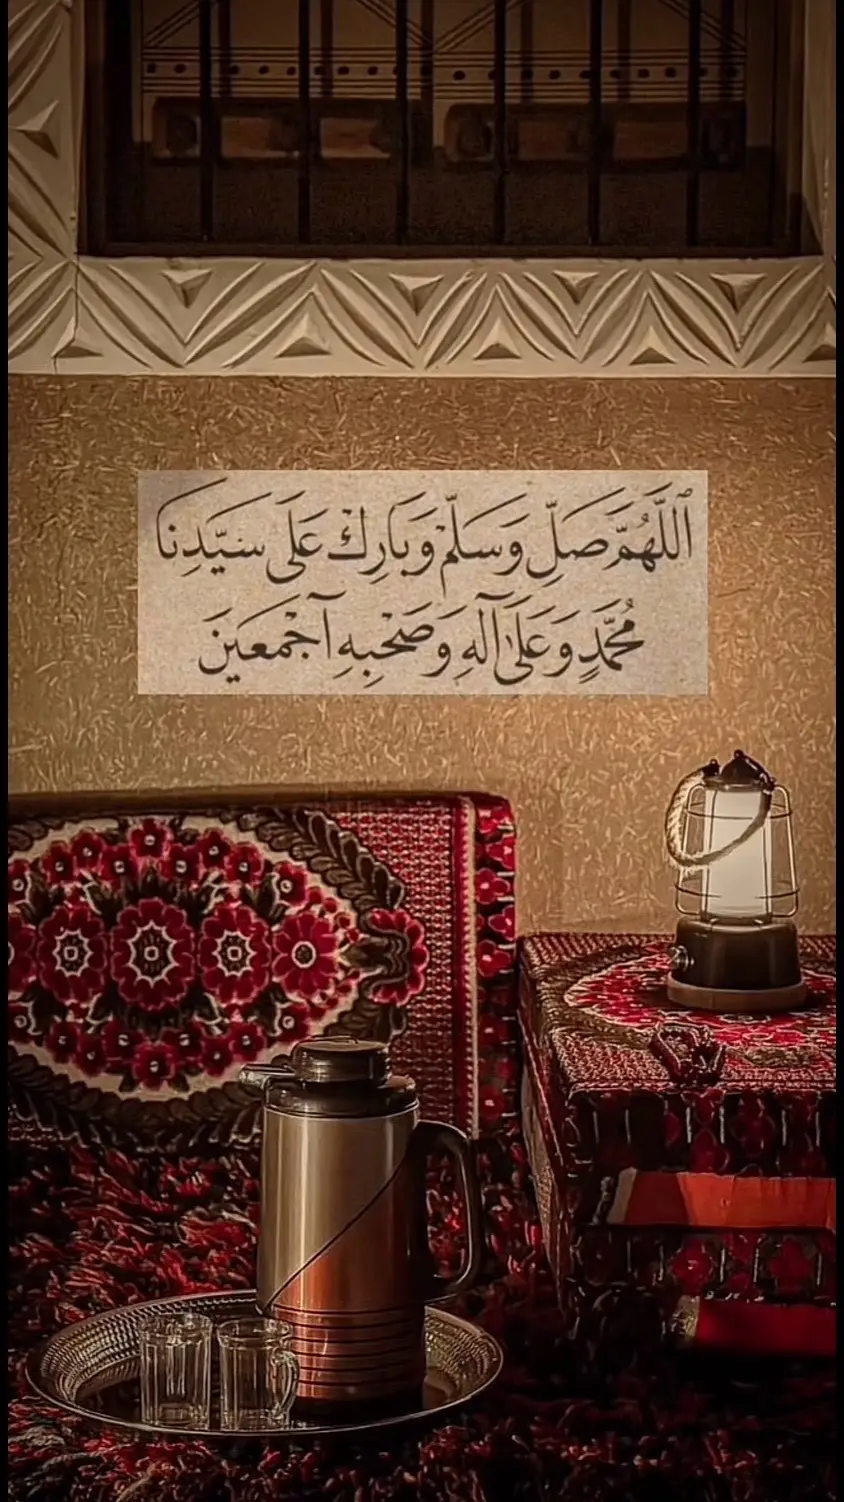 اَللَّهُمَّ صَلِّ وَسَلِّمْ وَبَارِكْ عَلَى سَيِّدِنَا
مُحَمَّدٍ وَعَلَىٰ آلِهِ وَصَحْبِهِ آجْمَعِينَ